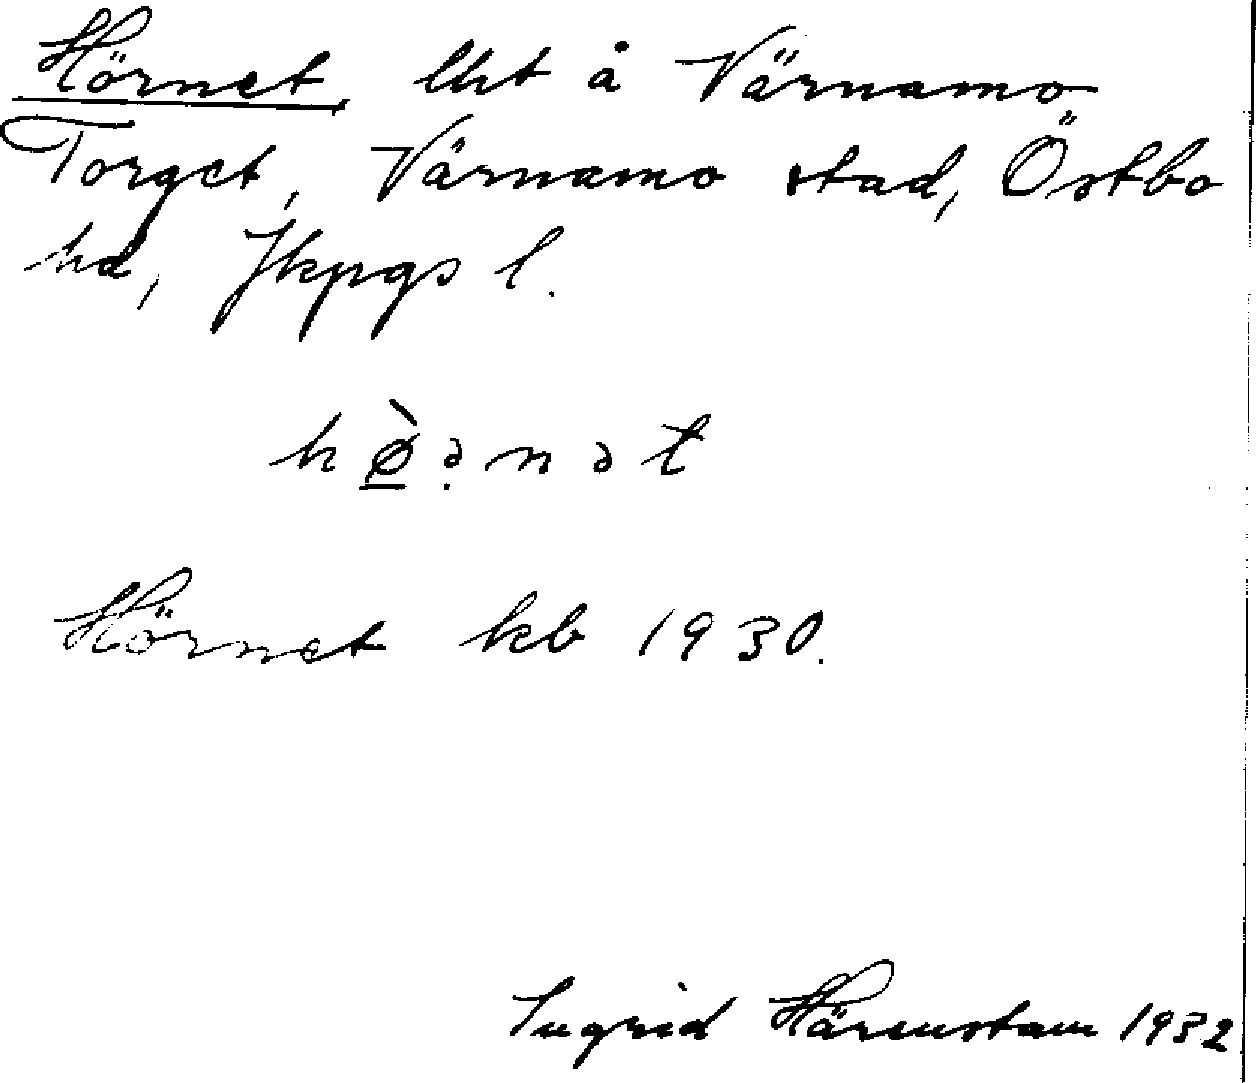 Hörnet lht å Värnamo
Torget, Värnamo stad, Östbo
hd, Jkpgs l.
hø̀ə̣nət
Hörnet kb 1930.
Ingrid Härenstam 1932